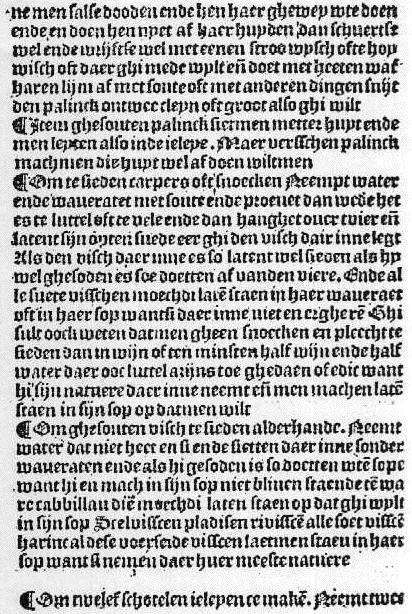 ne men salse dooden ende hen haer ghewey wte doen
ende en doen hen nyet af haer huyden dan schuertse
wel ende wrijftse wel met eenen stroo wysch ofte hoy
wisch oft daer ghi mede wylt eñ doet met heeten was
haren lijm af met soute oft met anderen dingen snijt
den palinck ontwee cleyn oft groot also ghi wilt
¶ Item ghesouten palinck sietmen metter huyt ende
men leytten also inde ieleye. Maer versschen palinck
machmen die huyt wel af doen wiltmen
¶ Om te sieden carpers oft snoecken Neempt water
ende waueratet met soute ende proeuet dan weder het
es te luttel oft te vele ende dan hanghet ouer tvier eñ
latent sijn outen suede eer ghi den visch dair inne legt
Als den visch daer inne es so latent wel sieden als hy
wel ghesoden es soe doetten af vanden viere. Ende al
le suete visschen moechdi latē staen in haer waueraet
oft in haer sop wantsi daer inne niet en ergherē Ghi
sult oock weten datmen gheen snoecken en pleecht te
sieden dan in wijn oft ten minsten half wijn ende half
water daer ooc luttel azijns toe ghedaen of edic want
hi sijn natuere daer inne neemt eñ men machen latē
staen in sijn sop op datmen wilt
¶ Om ghesouten visch te sieden alderhande. Neemt
water dat niet heet en si ende sietten daer inne sonder
waueraten ende als hi gesoden is so doetten wtē sope
want hi en mach in sijn sop niet bliuen staende tē wa
re cabbillau diē moechdi laten staen op dat ghi wylt
in sijn sop Scelvisscen pladisen rivisscē alle soet visscē
harinc al dese voerseide visscen laetmen staen in haer
sop want si nemen daer huer meeste natuere
¶ Om twelef schotelen ieleyen te makē. Neemt twee